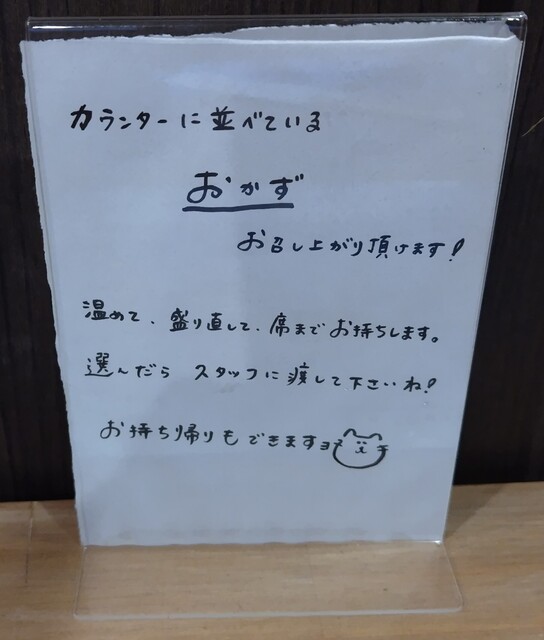 カウンターに並べている
おかず
お召し上がり頂けます!
温めて、盛り直して、席までお持ちします。
選んだら スタッフに渡して下さいね!
お持ち帰りもできますョ